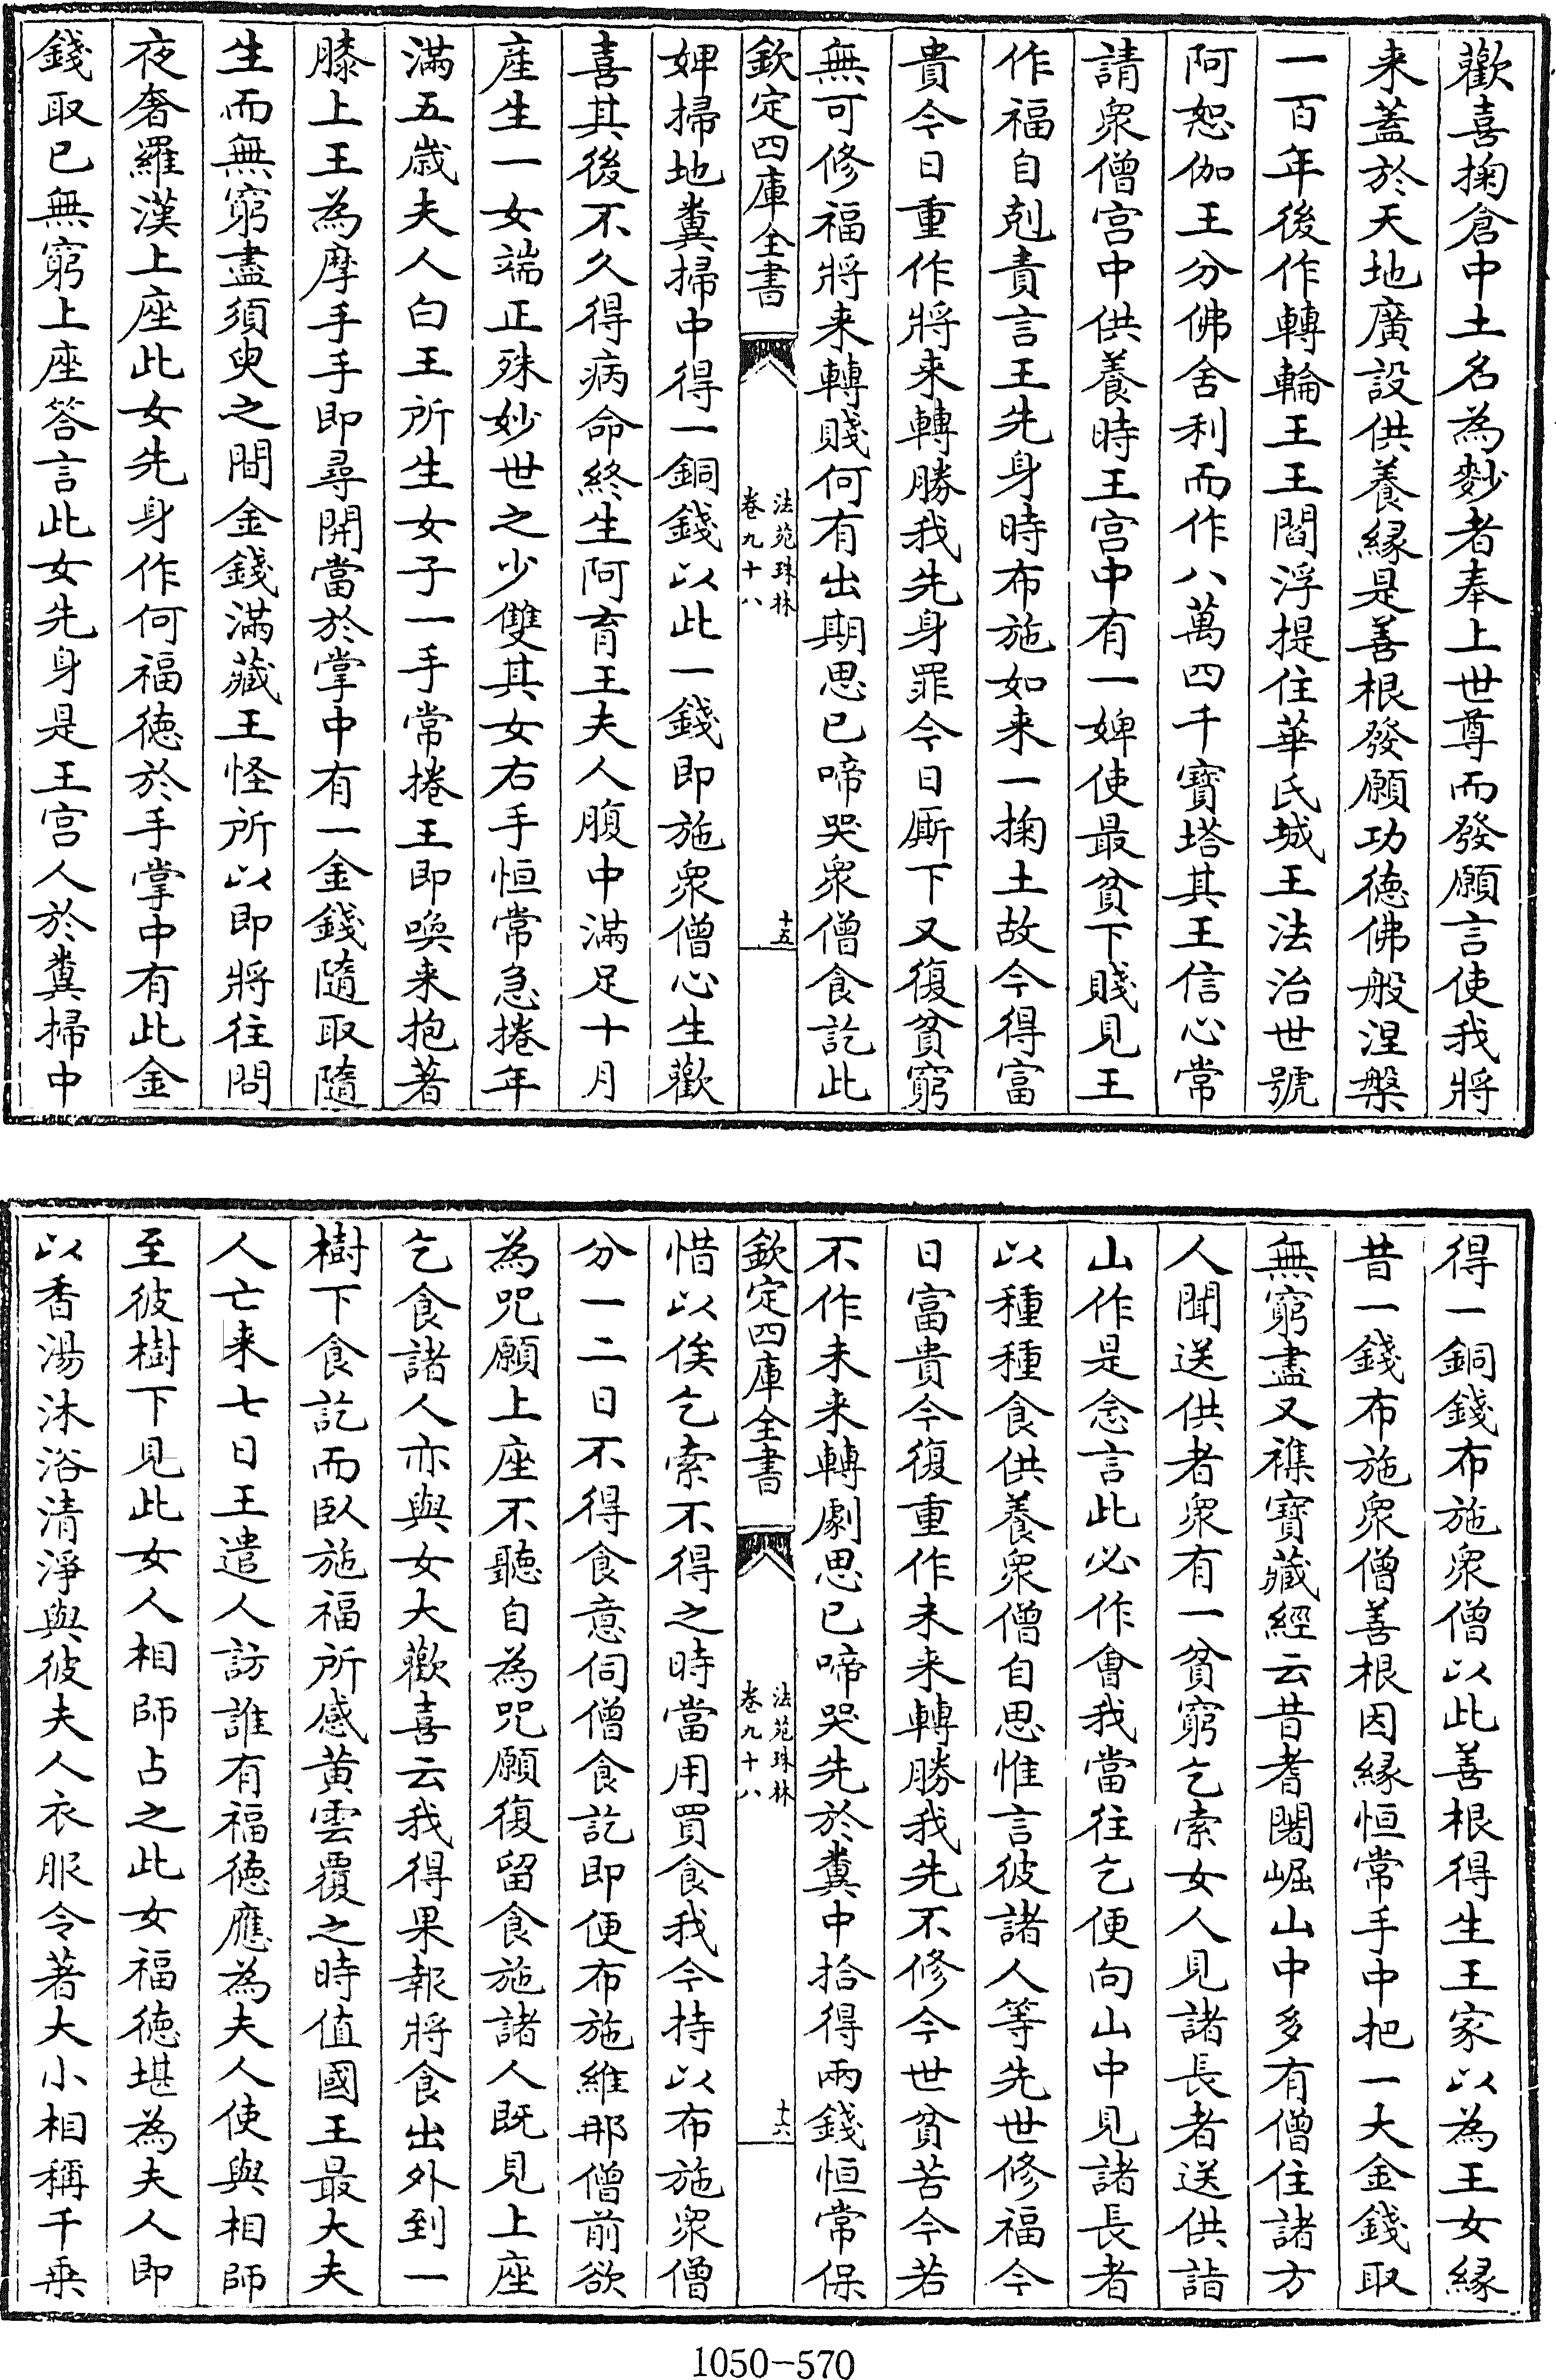 歡喜掬倉中土名為麨者奉上世尊而發願言使我將
来蓋於天地廣設供養縁是善根發願功徳佛般涅槃
一百年後作轉輪王王閻浮提住華氏城王法治世號
阿恕伽王分佛舍利而作八萬四千寶塔其王信心常
請衆僧宫中供養時王宫中有一婢使最貧下賤見王
作福自剋責言王先身時布施如来一掬土故今得富
貴今日重作將来轉勝我先身罪今日厮下又復貧窮
無可修福將来轉賤何有出期思已啼哭衆僧食訖此
欽定四庫全書
法苑珠林
卷九十八
十五
婢掃地糞掃中得一銅錢以此一錢即施衆僧心生歡
喜其後不久得病命終生阿育王夫人腹中滿足十月
産生一女端正殊妙世之少雙其女右手恒常急捲年
滿五嵗夫人白王所生女子一手常捲王即喚来抱著
膝上王為摩手手即尋開當於掌中有一金錢隨取隨
生而無窮盡須臾之間金錢滿藏王怪所以即將往問
夜奢羅漢上座此女先身作何福徳於手掌中有此金
錢取已無窮上座答言此女先身是王宫人於糞掃中
得一銅錢布施衆僧以此善根得生王家以為王女縁
昔一錢布施衆僧善根因縁恒常手中把一大金錢取
無窮盡又襍寶藏經云昔耆闍崛山中多有僧住諸方
人聞送供者衆有一貧窮乞索女人見諸長者送供詣
山作是念言此必作會我當往乞便向山中見諸長者
以種種食供養衆僧自思惟言彼諸人等先世修福今
日富貴今復重作未来轉勝我先不修今世貧苦今若
不作未来轉劇思已啼哭先於糞中拾得兩錢恒常保
欽定四庫全書
法苑珠林
卷九十八
十六
惜以俟乞索不得之時當用買食我今持以布施衆僧
分一二日不得食意伺僧食訖即便布施維那僧前欲
為咒願上座不聽自為咒願復留食施諸人既見上座
乞食諸人亦與女大歡喜云我得果報將食出外到一
樹下食訖而臥施福所感黄雲覆之時值國王最大夫
人亡来七日王遣人訪誰有福徳應為夫人使與相師
至彼樹下見此女人相師占之此女福徳堪為夫人即
以香湯沐浴清淨與彼夫人衣服令著大小相稱千乗
1050-570